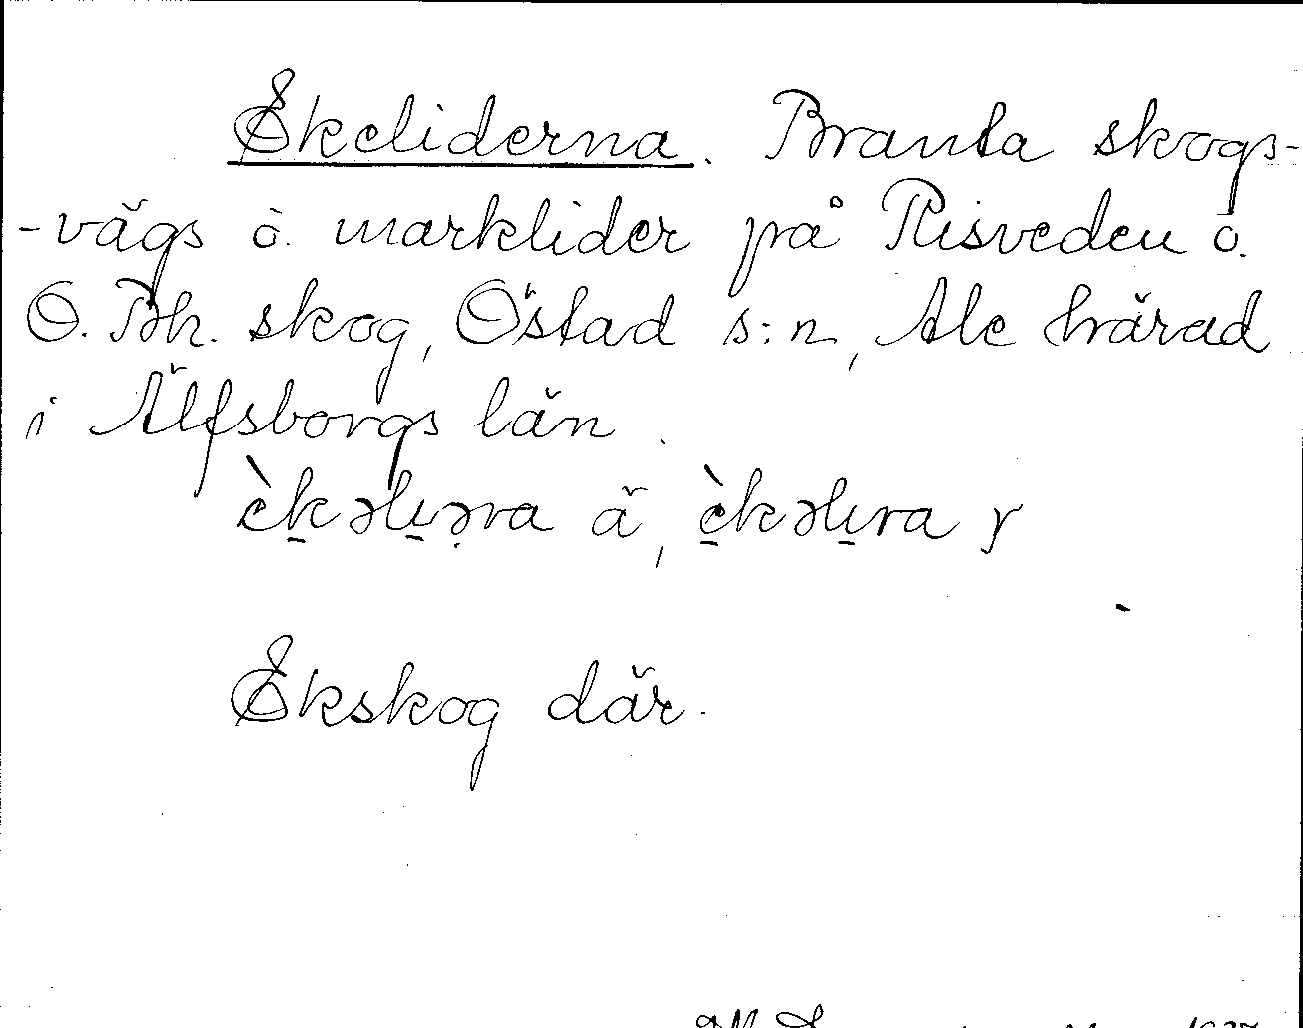 Ekeliderna. Branta skogs-
-vägs o. marklider på Risveden o.
O. Bh. skog, Östad s:n, Ale härad
i Älfsborgs län.
èkəlɩəra ä, èkəlɩra y
Ekskog där.